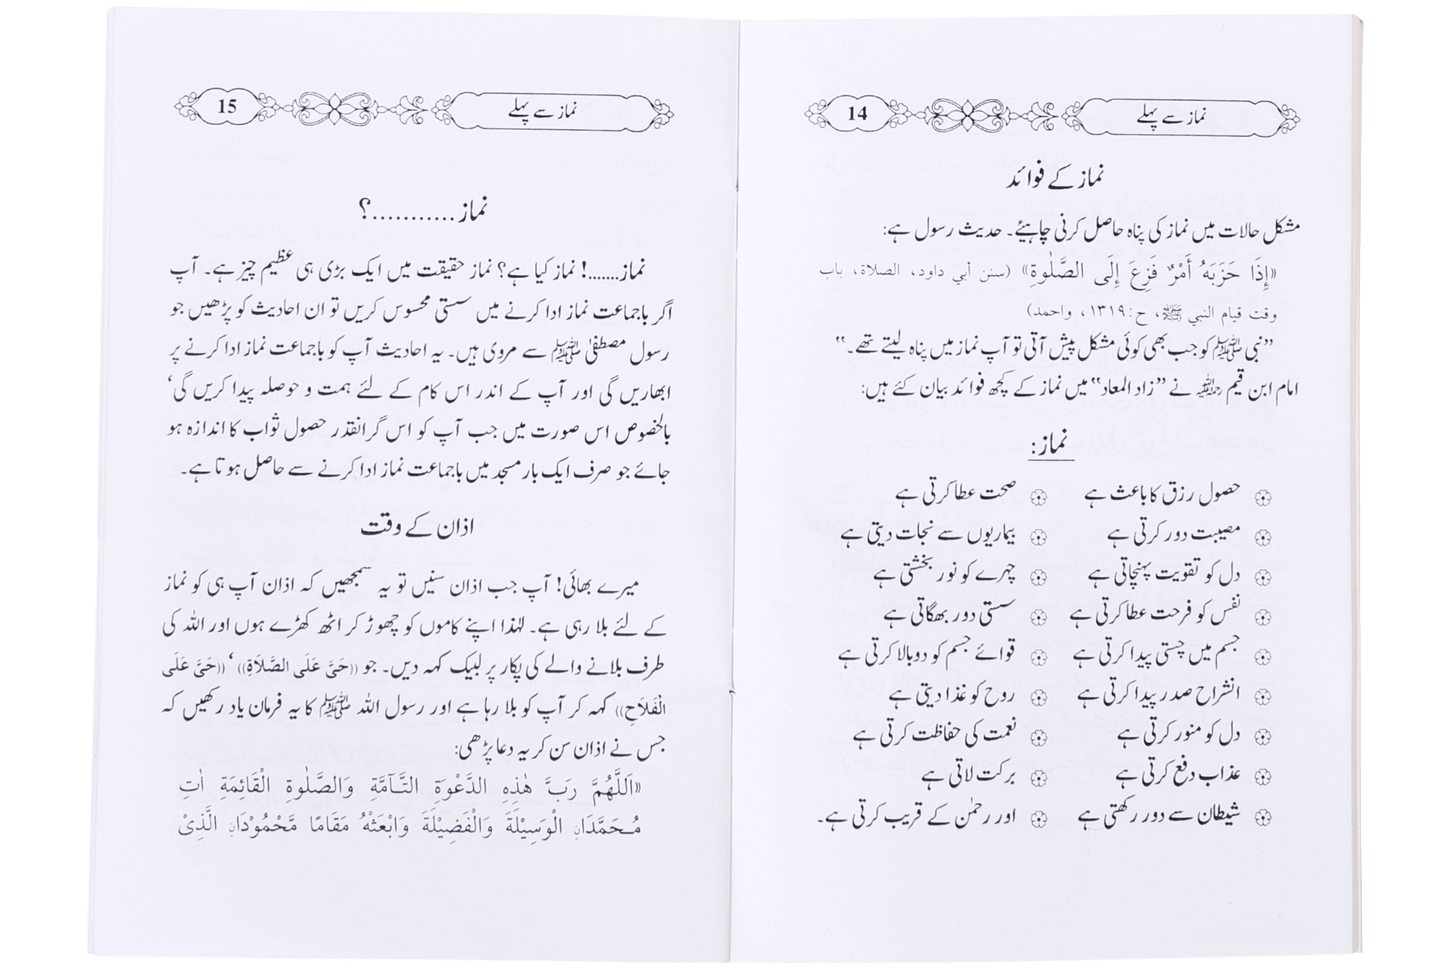 نماز سے پہلے 14
نماز کے فوائد
مشکل حالات میں نماز کی پناہ حاصل کرنی چاہیئے۔ حدیث رسول ہے:
«إِذَا حَزَبَهُ أَمْرٌ فَزِعَ إِلَى الصَّلٰوةِ» (سنن أبي داود، الصلاة، باب
وقت قيام النبي ﷺ، ح:١٣١٩، واحمد)
”نبی ﷺ کو جب بھی کوئی مشکل پیش آتی تو آپ نماز میں پناہ لیتے تھے۔“
امام ابن قیم رحمہ اللہ نے ”زاد المعاد“ میں نماز کے کچھ فوائد بیان کئے ہیں:
نماز:
حصول رزق کا باعث ہے صحت عطا کرتی ہے
مصیبت دور کرتی ہے بیماریوں سے نجات دیتی ہے
دل کو تقویت پہنچاتی ہے چہرے کو نور بخشتی ہے
نفس کو فرحت عطا کرتی ہے سستی دور بھگاتی ہے
جسم میں چستی پیدا کرتی ہے قوائے جسم کو دوبالا کرتی ہے
انشراح صدر پیدا کرتی ہے روح کو غذا دیتی ہے
دل کو منور کرتی ہے نعمت کی حفاظت کرتی ہے
عذاب دفع کرتی ہے برکت لاتی ہے
شیطان سے دور رکھتی ہے اور رحمٰن کے قریب کرتی ہے۔
نماز سے پہلے 15
نماز...........؟
نماز.......! نماز کیا ہے؟ نماز حقیقت میں ایک بڑی ہی عظیم چیز ہے۔ آپ
اگر باجماعت نماز ادا کرنے میں سستی محسوس کریں تو ان احادیث کو پڑھیں جو
رسول مصطفیٰ ﷺ سے مروی ہیں۔ یہ احادیث آپ کو باجماعت نماز ادا کرنے پر
ابھاریں گی اور آپ کے اندر اس کام کے لئے ہمت و حوصلہ پیدا کریں گی‘
بالخصوص اس صورت میں جب آپ کو اس گرانقدر حصول ثواب کا اندازہ ہو
جائے جو صرف ایک بار مسجد میں باجماعت نماز ادا کرنے سے حاصل ہوتا ہے۔
اذان کے وقت
میرے بھائی! آپ جب اذان سنیں تو یہ سمجھیں کہ اذان آپ ہی کو نماز
کے لئے بلا رہی ہے۔ لہٰذا اپنے کاموں کو چھوڑ کر اٹھ کھڑے ہوں اور اللہ کی
طرف بلانے والے کی پکار پر لبیک کہہ دیں۔ جو ((حَیَّ عَلَی الصَّلاَةِ))‘ ((حَیَّ عَلَی
الْفَلاَحِ)) کہہ کر آپ کو بلا رہا ہے اور رسول اللہ ﷺ کا یہ فرمان یاد رکھیں کہ
جس نے اذان سن کر یہ دعا پڑھی:
«اَللّٰهُمَّ رَبَّ هٰذِهِ الدَّعْوَةِ التَّآمَّةِ وَالصَّلٰوةِ الْقَائِمَةِ اٰتِ
مُحَمَّدَانِ الْوَسِيْلَةَ وَالْفَضِيْلَةَ وَابْعَثْهُ مَقَامًا مَّحْمُوْدَانِ الَّذِيْ